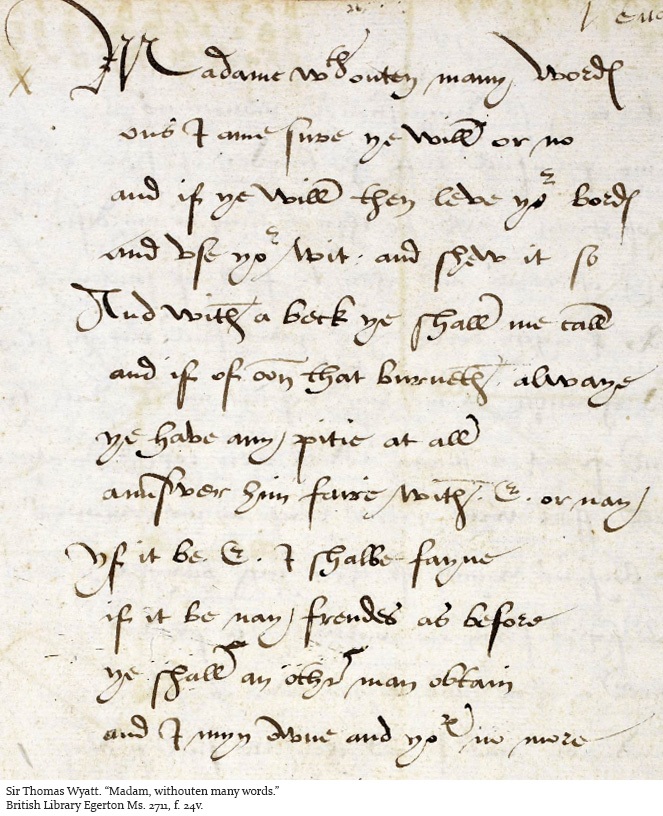 Madame wthouten many word
ons I ame sure ye will or no
and if ye will then leve yor bord
and vse yor wit and shew it so
And with a beck ye shall me call
and if of oon that burneth alwaye
ye have any pitie at all
aunswer him faire with .&. or nay
yf it be .&. I shalbe fayne
if it be nay frendes as before
ye shall an othr man obtain
and I myn owne and yor no more
Sir Thomas Wyatt. “Madam, withouten many words.”
British Library Egerton Ms. 2711, f. 24v.